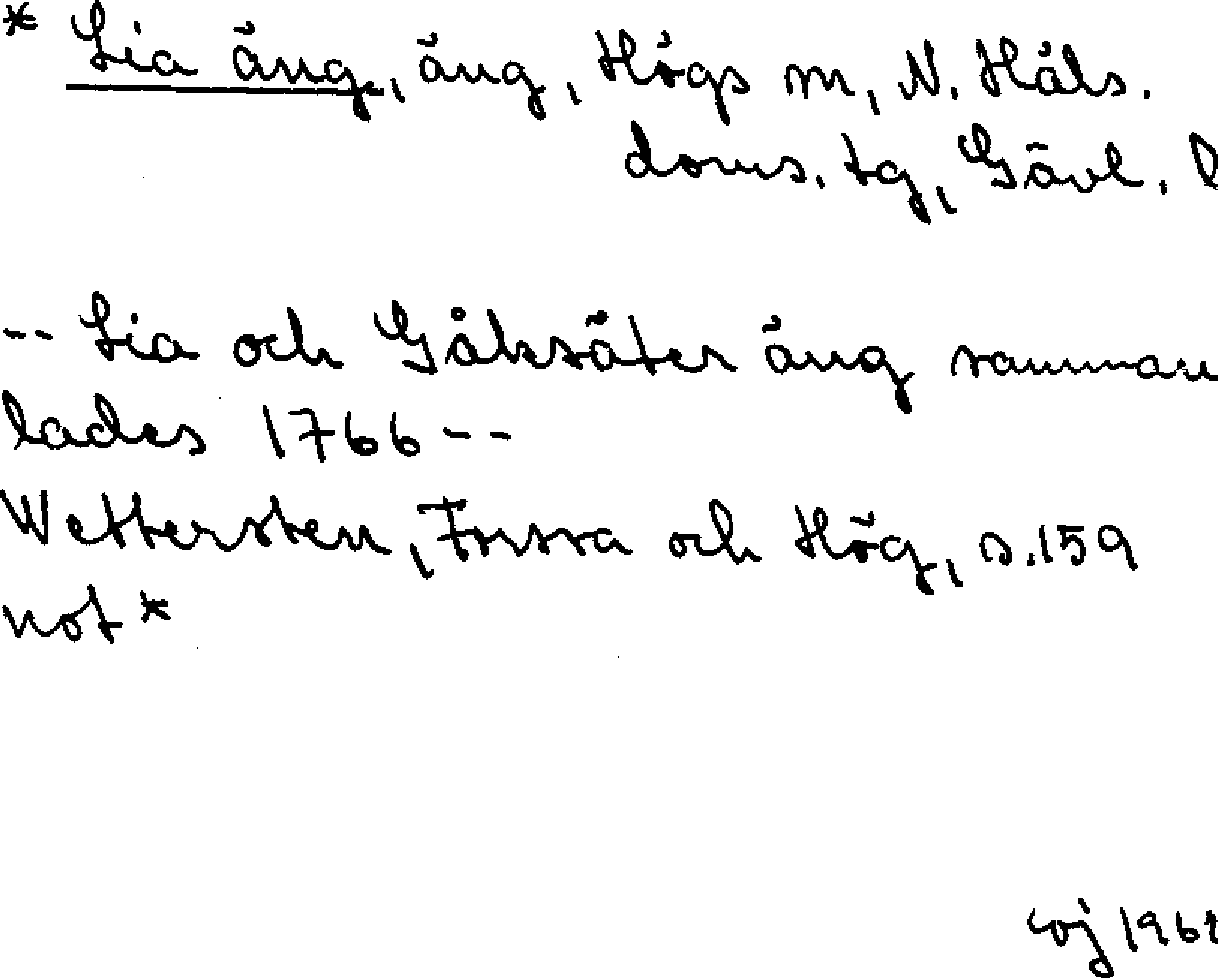 * Lia äng, äng, Högs m, N. Häls.
doms. tg, Gävl. l
-- Lia och Gåksäter äng samman
lades 1766 --
Wettersten, Forssa och Hög, s. 159
not *
1961